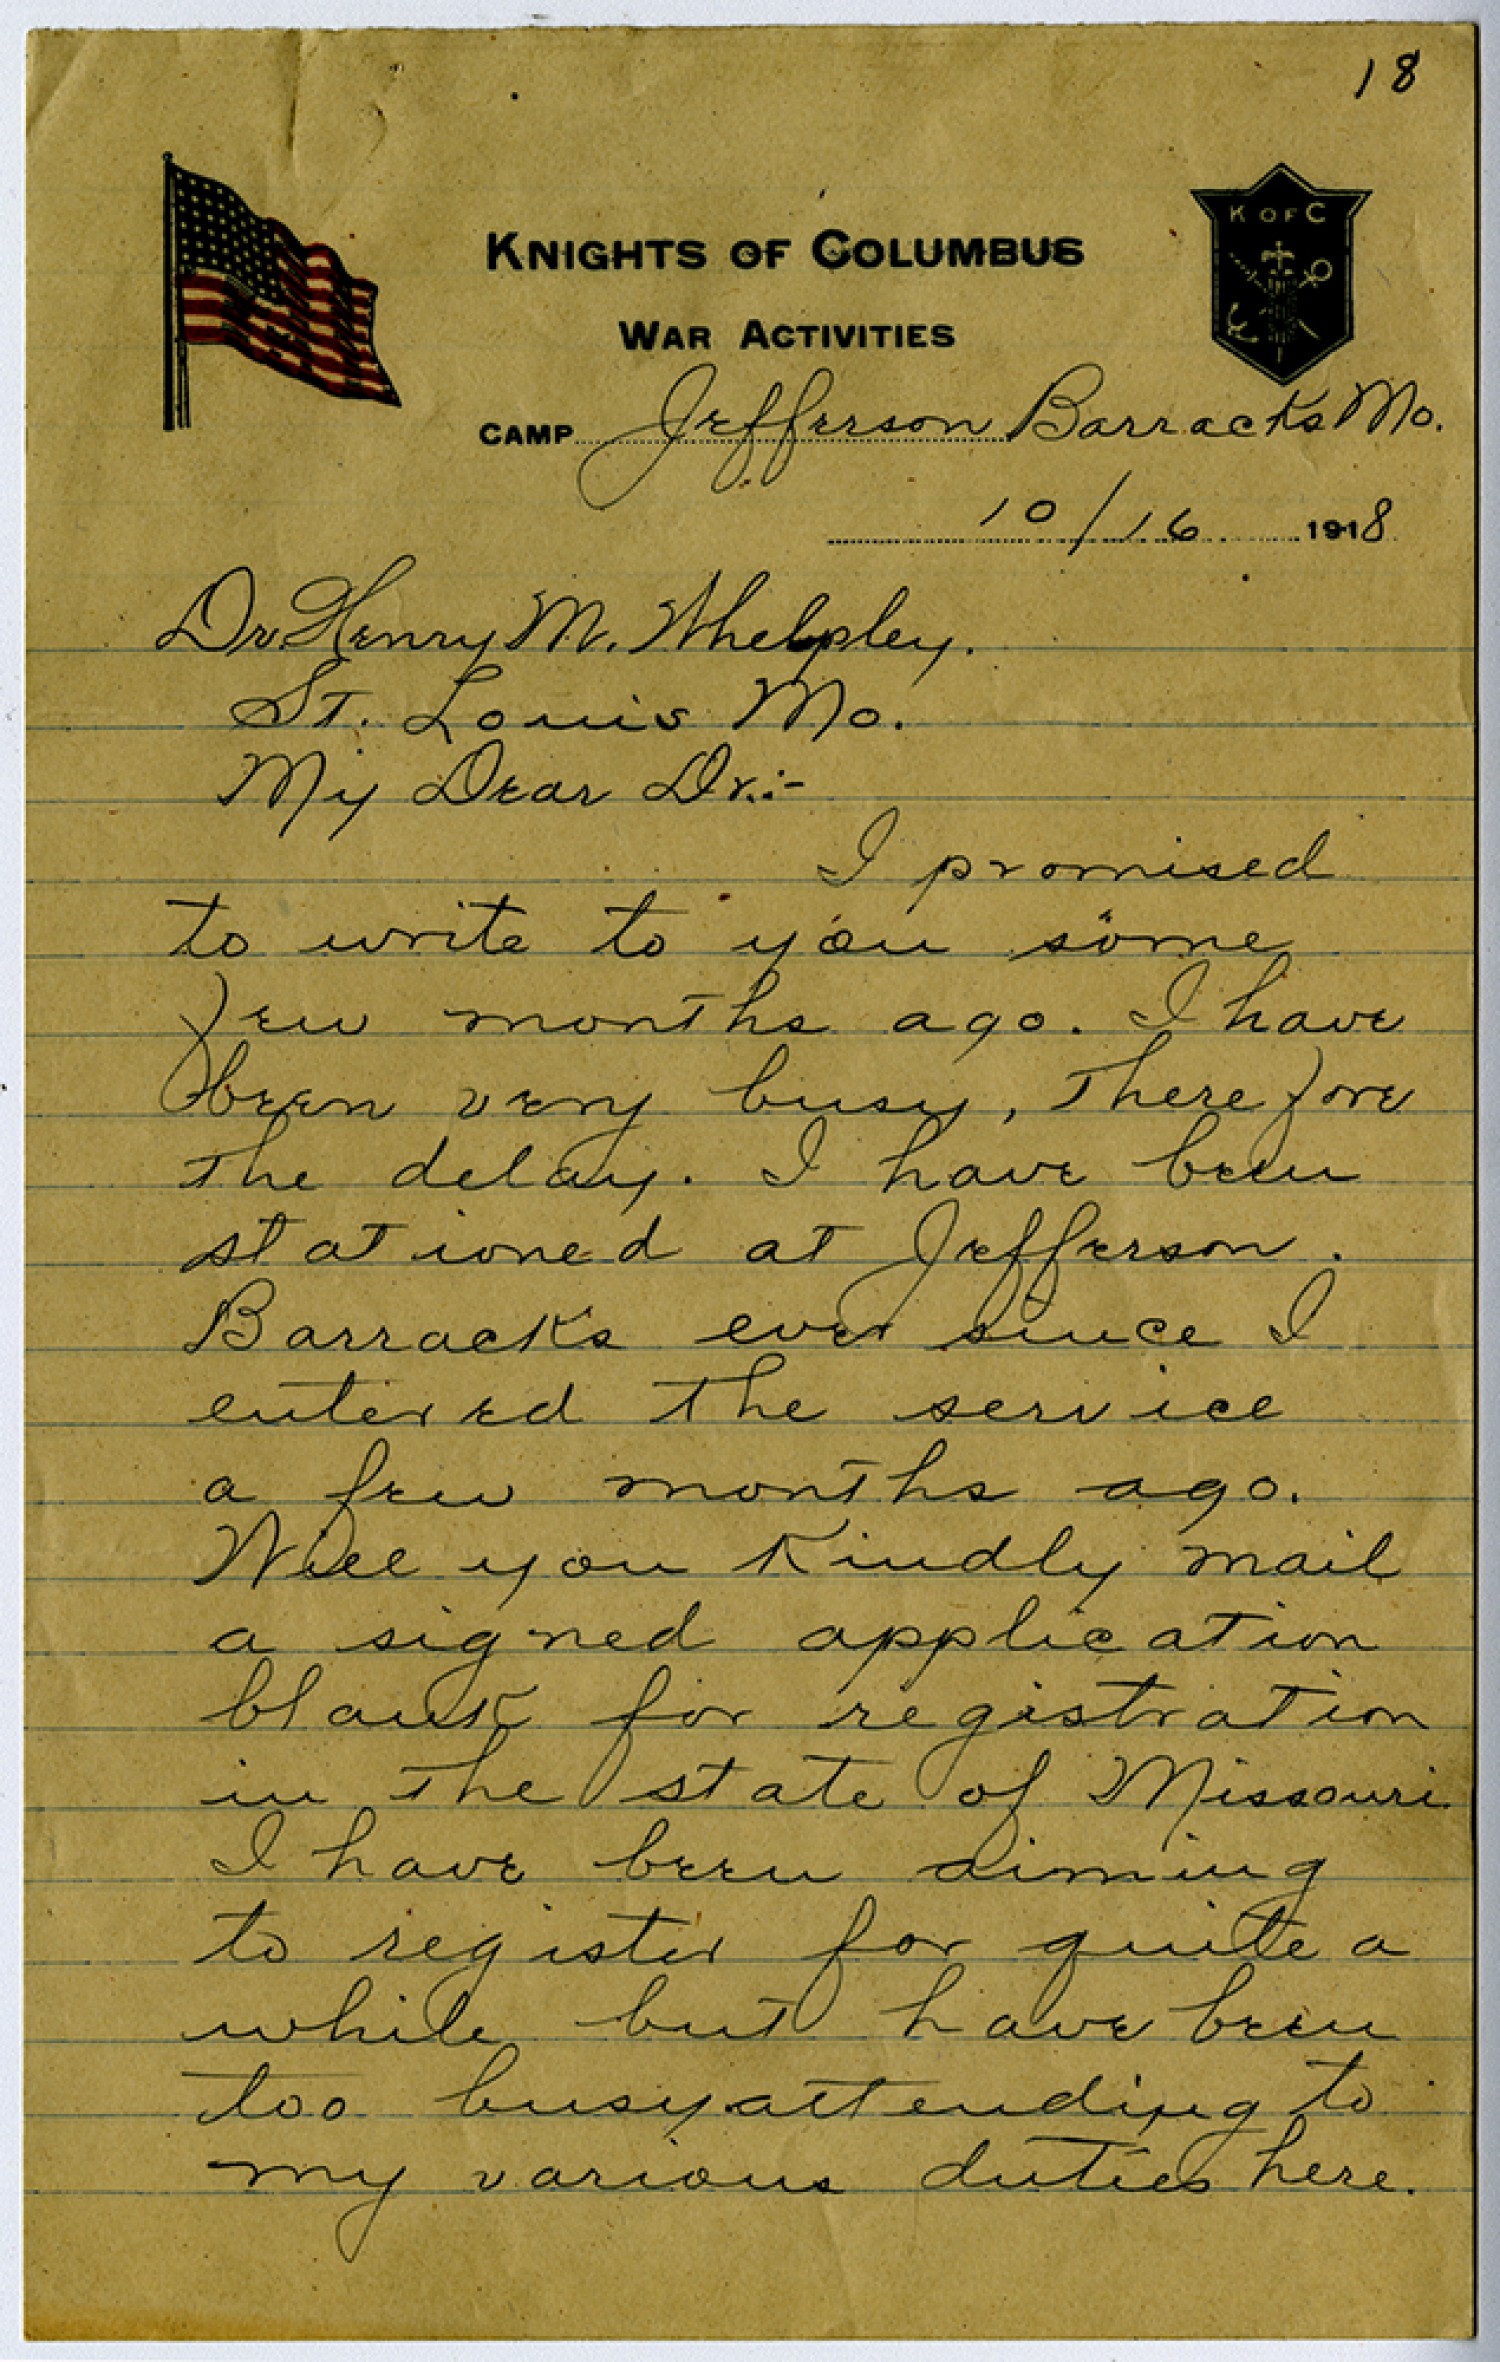 18
K OF C
KNIGHTS OF COLUMBUS
WAR ACTIVITIES
CAMP Jefferson Barracks Mo.
10/16 1918
Dr Henry M. Whelpley.
St. Louis Mo.
My Dear Dr.:-
I promised
to write to you some
few months ago. I have
been very busy, therefore
the delay. I have been
stationed at Jefferson.
Barracks ever since I
entered the service
a few months ago.
Will you Kindly mail
a signed application
blank for registration
in the state of Missouri
I have been aiming
to register for quite a
while but have been
too busy attending to
my various duties here.